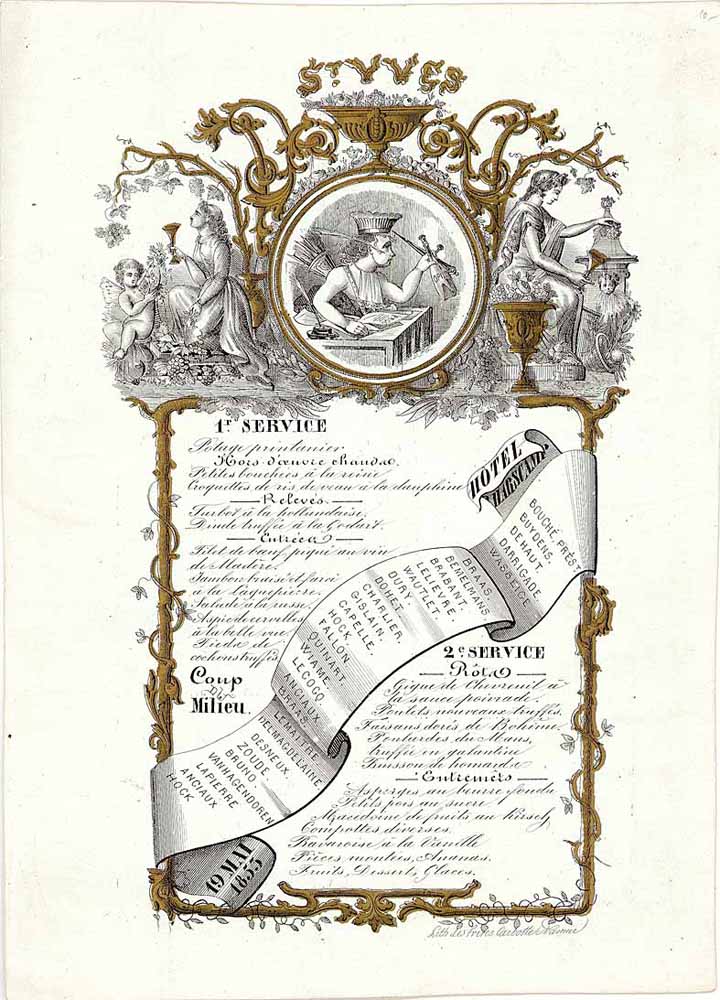 ST YVES
1r SERVICE
Potage printanier
Hors d'œuvre chauds.
Petites bouchées à la reine
Croquettes de ris de veau à la dauphine
Relevés.
Turbot à la hollandaise.
Dinde truffée à la Godart.
Entrées
Filet de bœuf piqué au vin
de Madère.
Jambon braisé et farci
à la Laguepierre.
Salade à la russe.
Aspic de cervelles
à la belle vue
Pieds de
cochons truffés
Coup
du
Milieu.
HÔTEL
MARSCAND
BOUCHÉ, PRÉST
BUYDENS.
DEHAUT.
DARRIGADE.
WASSEIGE
BRAAS.
BEMELMANS
BRABANT.
LELIEVRE.
WAUTLET.
DURY.
DOHET.
GISLAIN.
CHARLIER.
CAPELLE.
HOCK.
FALLON
QUINART.
WIAME.
LECOCQ
ANCIAUX.
BRAAS.
LEMAITRE.
DELMAGDELAINE
DESNEUX.
ZOUDE.
BRUNO.
VANHAGENDOREN
LAPIERRE.
ANCIAUX
HOCK
19 MAI
1853
2e SERVICE
Rôts
Gigue de Chevreuil à
la sauce poivrade.
Poulets nouveaux truffés.
Faisans dorés de Bohême.
Poulardes du Mans,
truffée en galantine
Buisson de homards
Entremets
Asperges au beurre fondu
Petits pois au sucre
Macédoine de fruits au Kirsch
Compottes diverses.
Bavaroise à la Vanille
Pièces montées, Ananas.
Fruits, Dessert, Glaces.
Lith Les Frères Namur